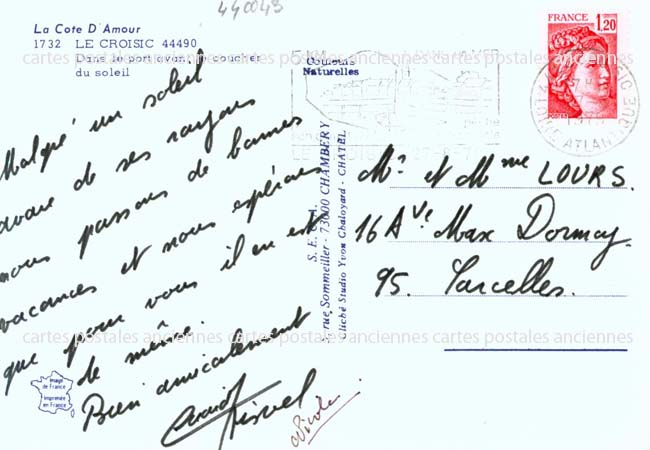 440043
La Cote D'Amour
1732 LE CROISIC 44490
Dans le port avant le coucher
du soleil
Couleurs
Naturelles
FRANCE
1,20
LOIRE ATLANTIQUE
cartes postales anciennes cartes postales anciennes cartes postales anciennes
Malgré un soleil
avare de ses rayons
nous passons de bonnes
vacances et nous espérons
que pour vous il en est
de même.
Bien amicalement
Nicole
S. E. C. A.
rue Sommeiller - 73000 CHAMBERY
Cliché Studio Yvon Chaloyard - CHATEL
Mr et Mme LOURS.
16 Ave Max Dormoy
95. Sarcelles.
cartes postales anciennes cartes postales anciennes cartes postales anciennes
Image
de France
Imprimée
en France